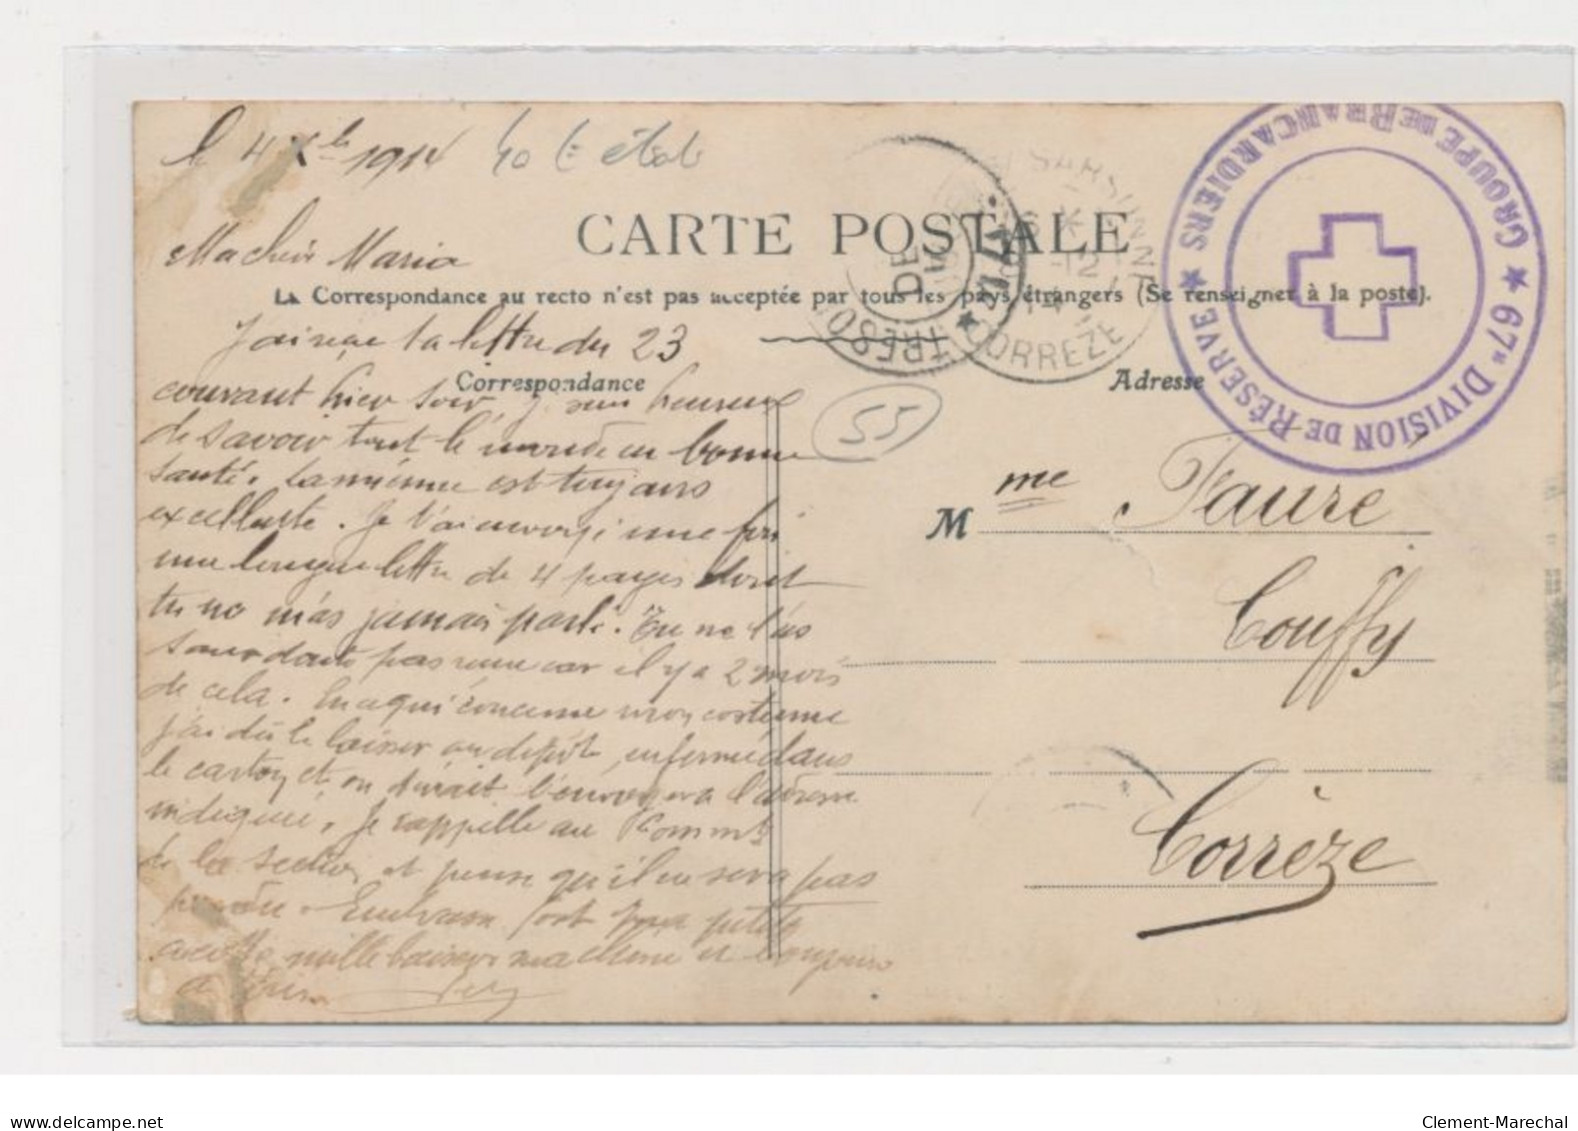 le 4 Xbre 1914
CARTE POSTALE
Ma chère Maria
La Correspondance au recto n'est pas acceptée par tous les pays étrangers (Se renseigner à la poste).
J'ai reçu ta lettre du 23
Correspondance
Adresse
courant hier soir, je suis heureux
de savoir tout le monde en bonne
santé. La mienne est toujours
excellente. Je t'ai envoyé une fois
une longue lettre de 4 pages dont
tu ne m'as jamais parlé. Tu ne l'as
sans doute pas reçue car il y a 2 mois
de cela. En ce qui concerne mon costume
j'ai dû le laisser au dépôt, enfermé dans
le carton et on devait l'envoyer à l'adresse
indiquée. Je rappelle au
de la section et pense qu'il ne sera pas
perdu. Embrasse fort nos petits
mille baisers ma chérie et toujours
à
55
Mme Faure
Couffy
Corrèze
TRESOR
CORREZE
12
14
★ 67e DIVISION DE RÉSERVE ★ GROUPE DE BRANCARDIERS
delcampe.net
Clement-Marechal